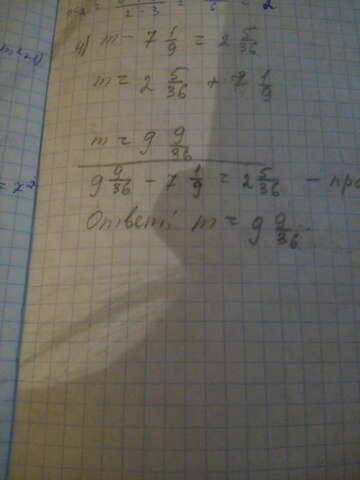 4) m - 7 1/9 = 2 5/36
m = 2 5/36 + 7 1/9
m = 9 9/36
9 9/36 - 7 1/9 = 2 5/36 -
Ответ: m = 9 9/36